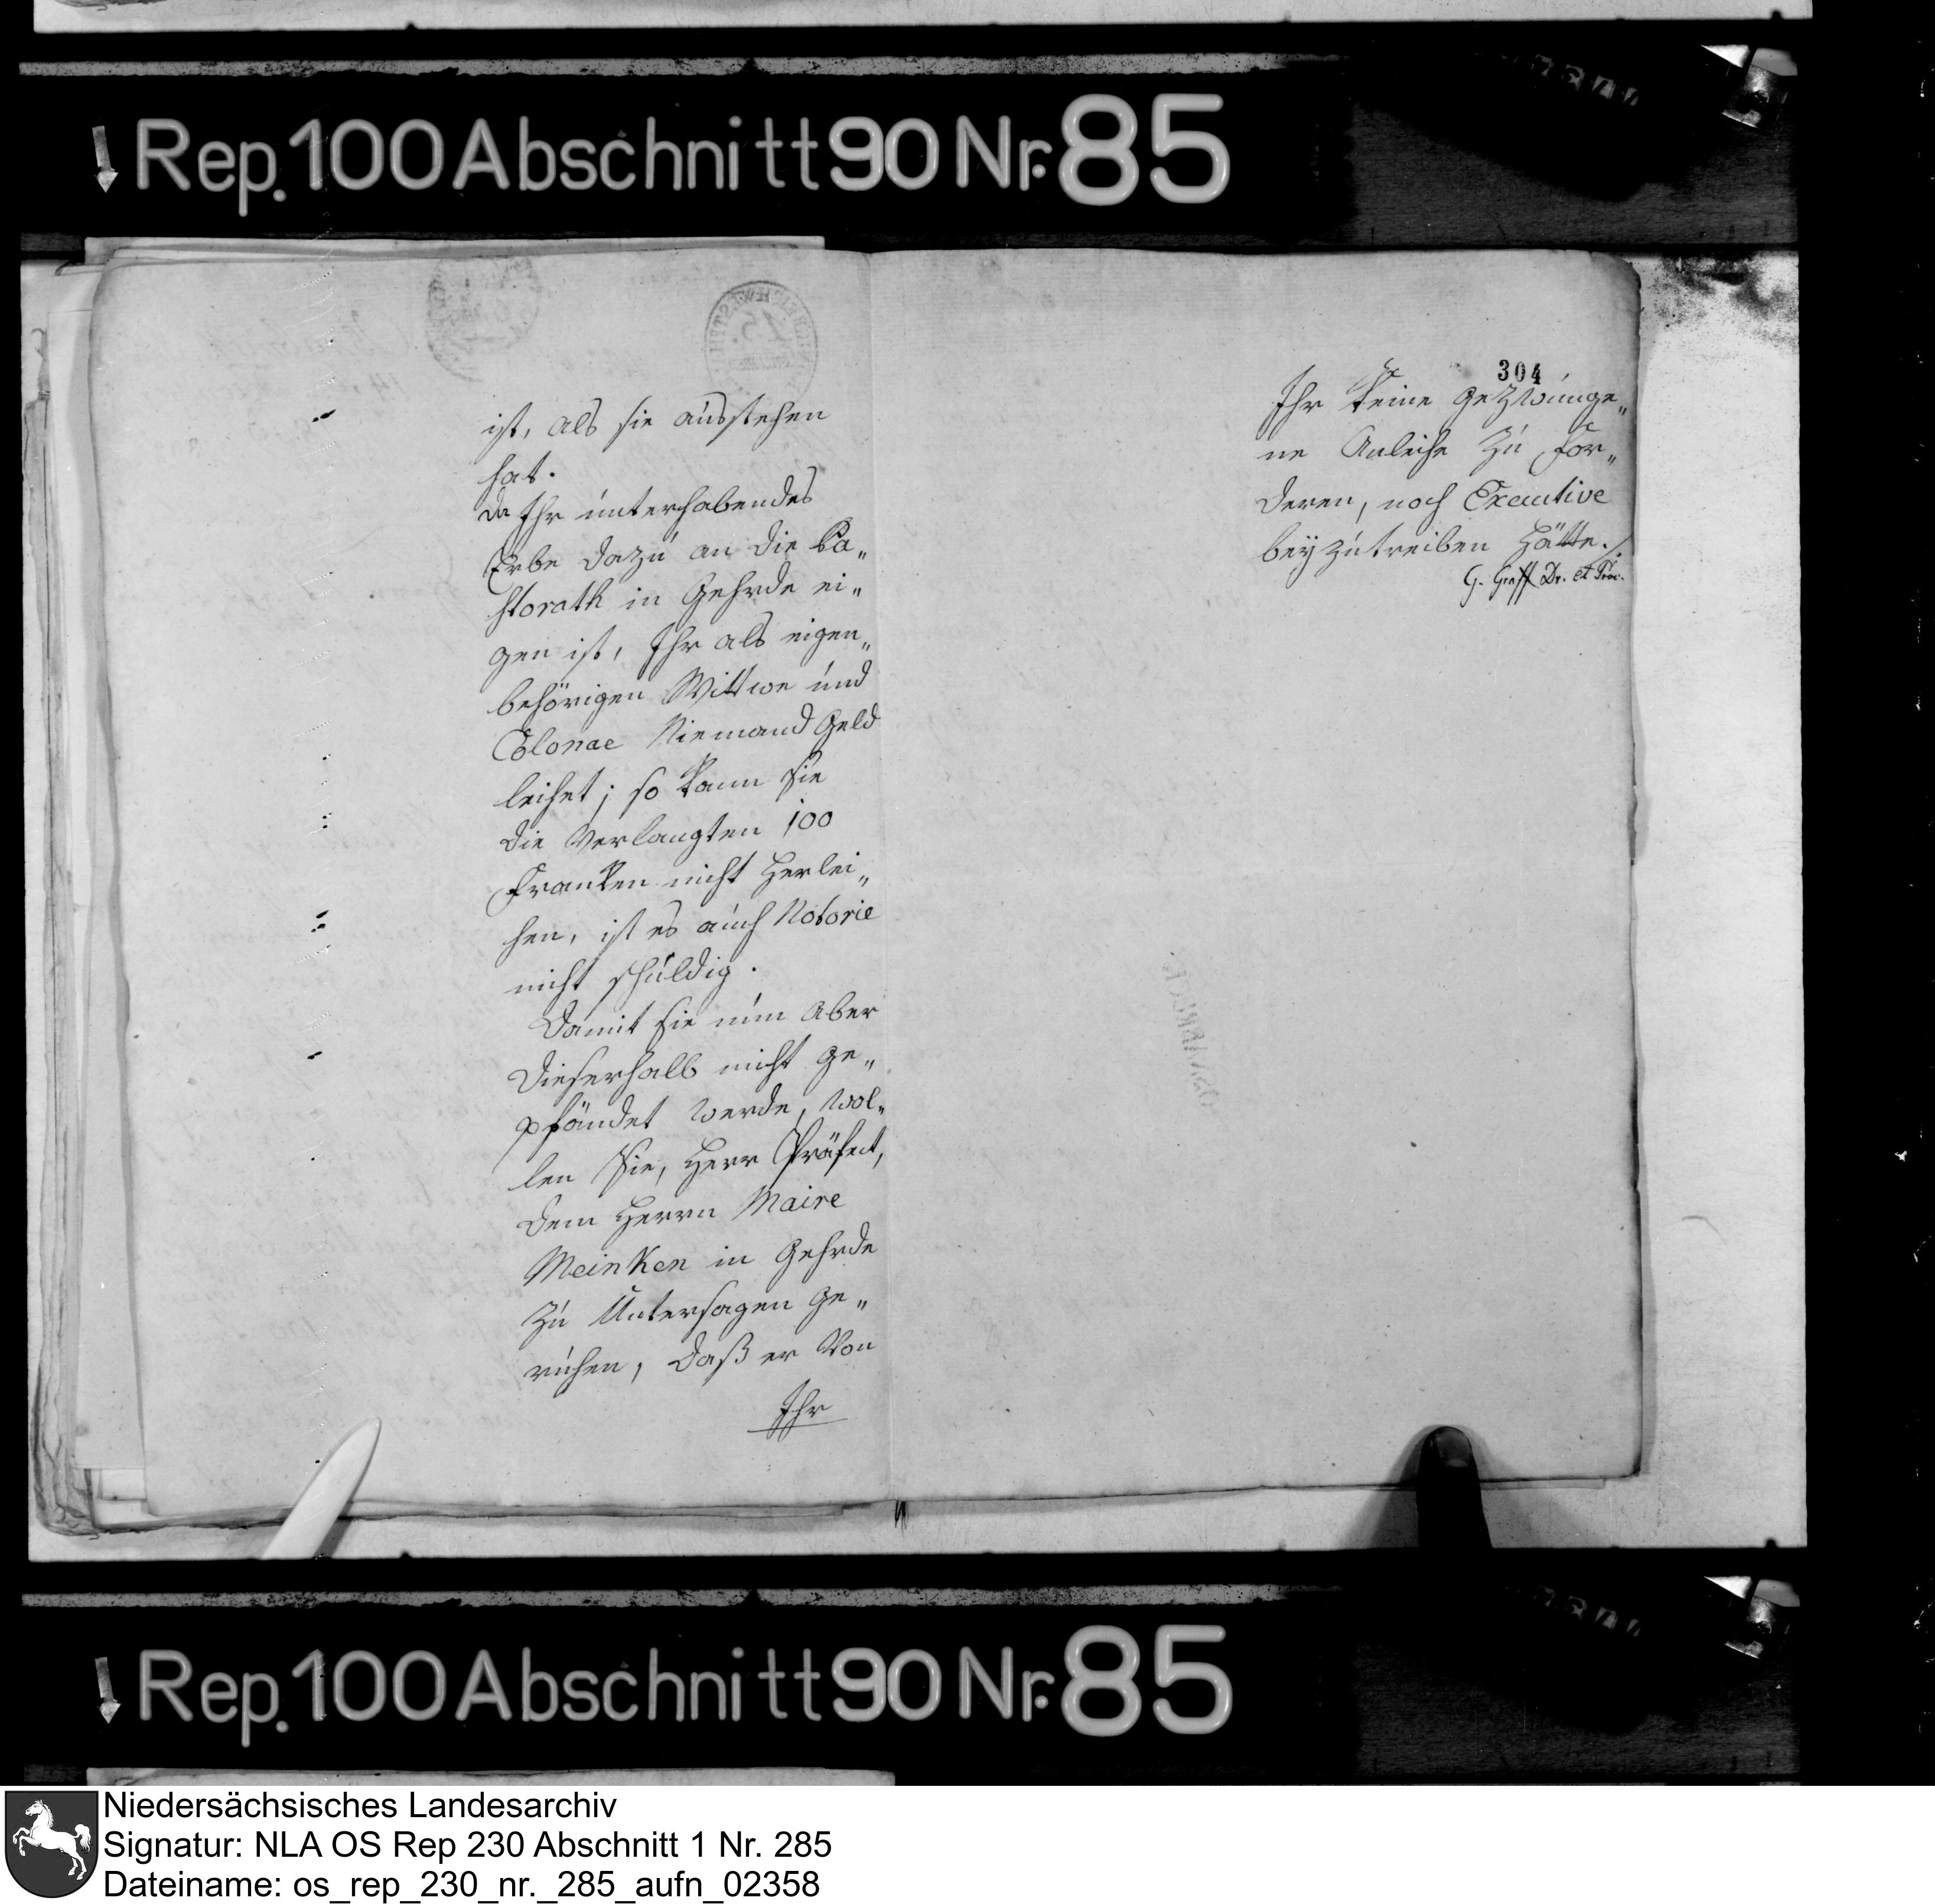 Rep. 100 Abschnitt 90 Nr. 85
ist, als sie ausstehen
hat.
Da Ihr unterhabendes
Erbe dazu an die Pa„
storath in Gehrde ei„
gen ist, Ihr als eigen„
behörigen Wittwe und
Colonae Niemand Geld
leihet; so kann sie
die Verlangten 100
Franken nicht Herlei„
hen, ist es auch Notorie
nicht schuldig.
Damit sie nun Aber
dieserhalb nicht ge„
pfändet werde, wol„
len Sie, Herr Präfect,
dem Herrn Maire
Meinken in Gehrde
zu Untersagen ge„
ruhen, daß er Von
Ihr
304
Ihr keine gezwunge„
ne Anleihe zu for„
deren, noch Executive
beyzutreiben Hätte./.
G. Graff Dr. et Proc.
Rep. 100 Abschnitt 90 Nr. 85
Niedersächsisches Landesarchiv
Signatur: NLA OS Rep 230 Abschnitt 1 Nr. 285
Dateiname: os_rep_230_nr._285_aufn_02358